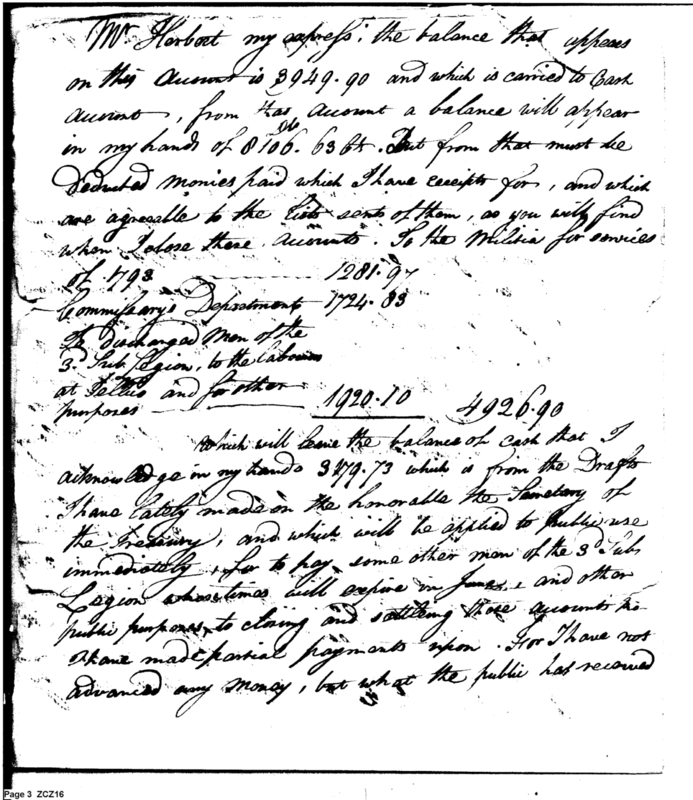 Mr Herbert my express; the balance that appears
on this account is 3949.90 and which is carried to Cash
account, from that account a balance will appear
in my hands of 8106. Do 63 Cts. But from that must be
deducted monies paid which I have receipts for, and which
are agreeable to the lists sent of them, as you will find
when I close these accounts. To the Militia for services
of 793 1281.97
Commissarys Department 1724.83
To discharged Men of the
3d Sub Legion, to the labourers
at Tellico and for other
purposes 1920.10 4926.90
Which will leave the balance of cash that I
acknowledge in my hands 3179.73 which is from the Drafts
I have lately made on the honorable the Secretary of
the Treasury, and which will be applied to public use
immediately, for to pay some other men of the 3d Sub
Legion whose times will expire in June, and other
public purposes, to closing and settling those accounts
I have made partial payments upon. For I have not
advanced any money, but what the public has received
Page 3 ZCZ16